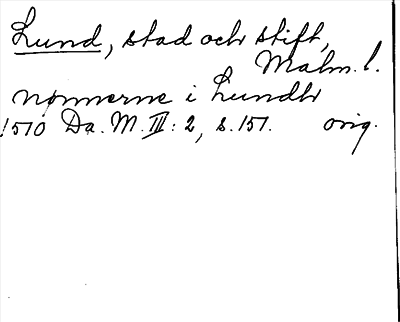 Lund, stad och stift,
Malm. l.
nonnerne i Lundh
1510 Da. M. III: 2, s. 151. orig.